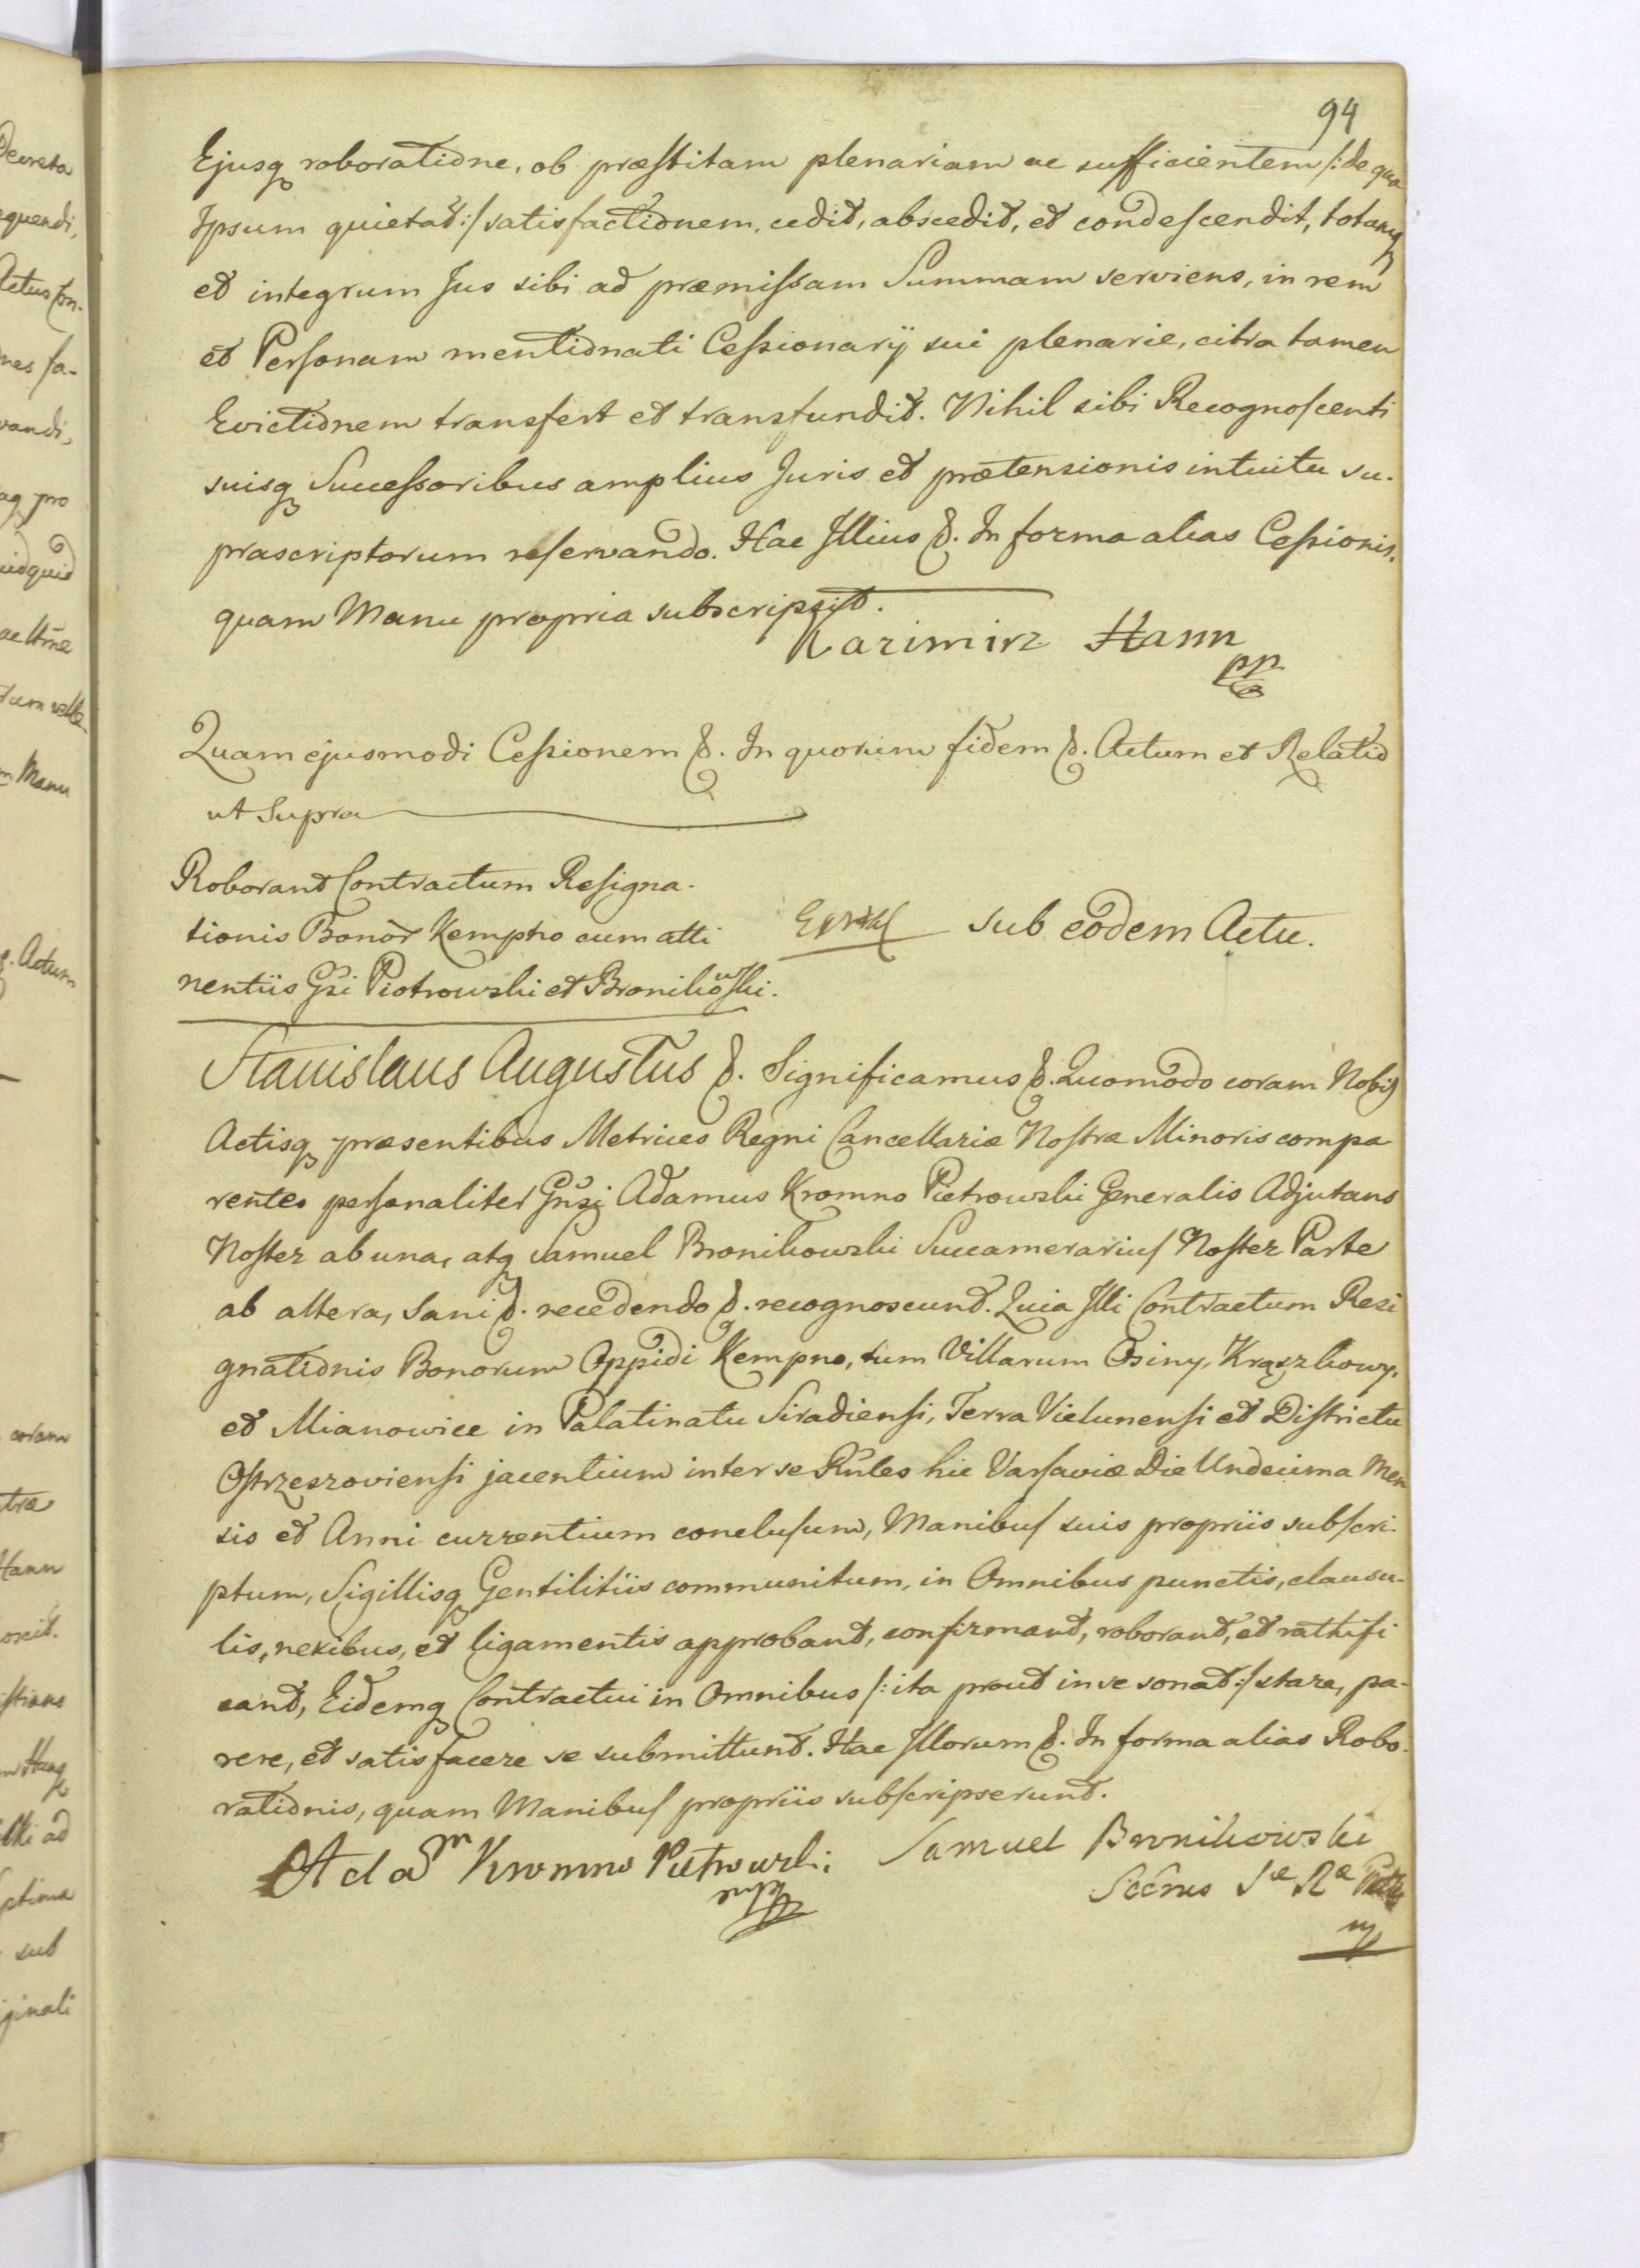 94
Ejusq roboratione, ob præstitam plenariam ac sufficientem /: de qua
Ipsum quietat :/ satisfactionem, cedit, abscedit, et condescendit, totumq
et integrum Jus sibi ad præmissam Summam serviens, in rem
et Personam mentionati Cessionarÿ sui plenarie, citra tamen
Evictionem transfert et transfundit. Nihil sibi Recognoscenti
suisq Successoribus amplius Juris et prætensionis intuitu su-
prascriptorum reservando. Hac Illius &. In forma alias Cessionis,
quam Manu propria subscripsit.
Kazimirz Hann
pp
Quam ejusmodi Cessionem &. In quorum fidem &. Actum et Relatio
ut Supra
Roborant Contractum Resigna-
tionis Bonor Kempno cum atti
nentiis Gsi Piotrowski et Bronikowski.
sub eodem Actu.
Stanislaus Augustus &. Significamus &. Quomodo coram Nobis
Actisq præsentibus Metrices Regni Cancellariæ Nostræ Minoris compa
rentes personaliter Gnsi Adamus Kromno Pietrowski Generalis Adjutans
Noster ab una, atq Samuel Bronikowski Succamerarius Noster Parte
ab altera, Sani &. recedendo &. recognoscunt. Quia Illi Contractum Resi
gnationis Bonorum Oppidi Kempno, tum Villarum Osiny, Krąszkowy,
et Mianowice in Palatinatu Siradiensi, Terra Vielunensi et Districtu
Ostrzeszoviensi jacentium inter se Rntes hic Varsaviæ Die Undecima Men
sis et Anni currentium conclusum, Manibus suis propriis subscri-
ptum, Sigillisq Gentilitiis communitum, in Omnibus punctis, clausu-
lis, nexibus, et ligamentis approbant, confirmant, roborant, et rathifi
cant, Eidemq Contractui in Omnibus /: ita prout in se sonat :/ stare, pa-
rere, et satisfacere se submittunt. Hac Illorum &. In forma alias Robo-
rationis, quam Manibus propriis subscripserunt.
Adam Kromno Pietrowski
mpp
Samuel Bronikowski